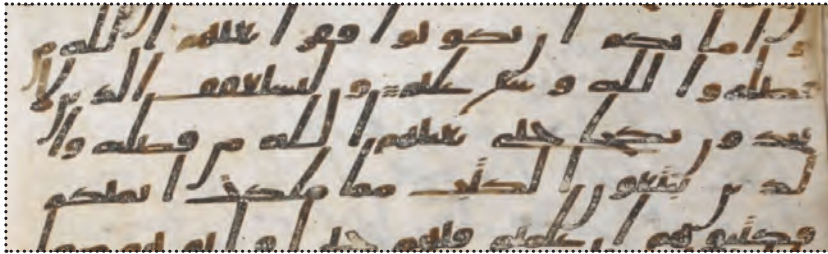 و امايكم ان يكونوا فقرا يغنهم الله من
فضله و الله وسع عليم و ليستعفف الذين لا
يجدون نكاحا حتى يغنيهم الله من فضله وا
لذين يبتغون الكتب مما ملكت ايمنكم
فكتبوهم ان علمتم فيهم خيرا و اتوهم